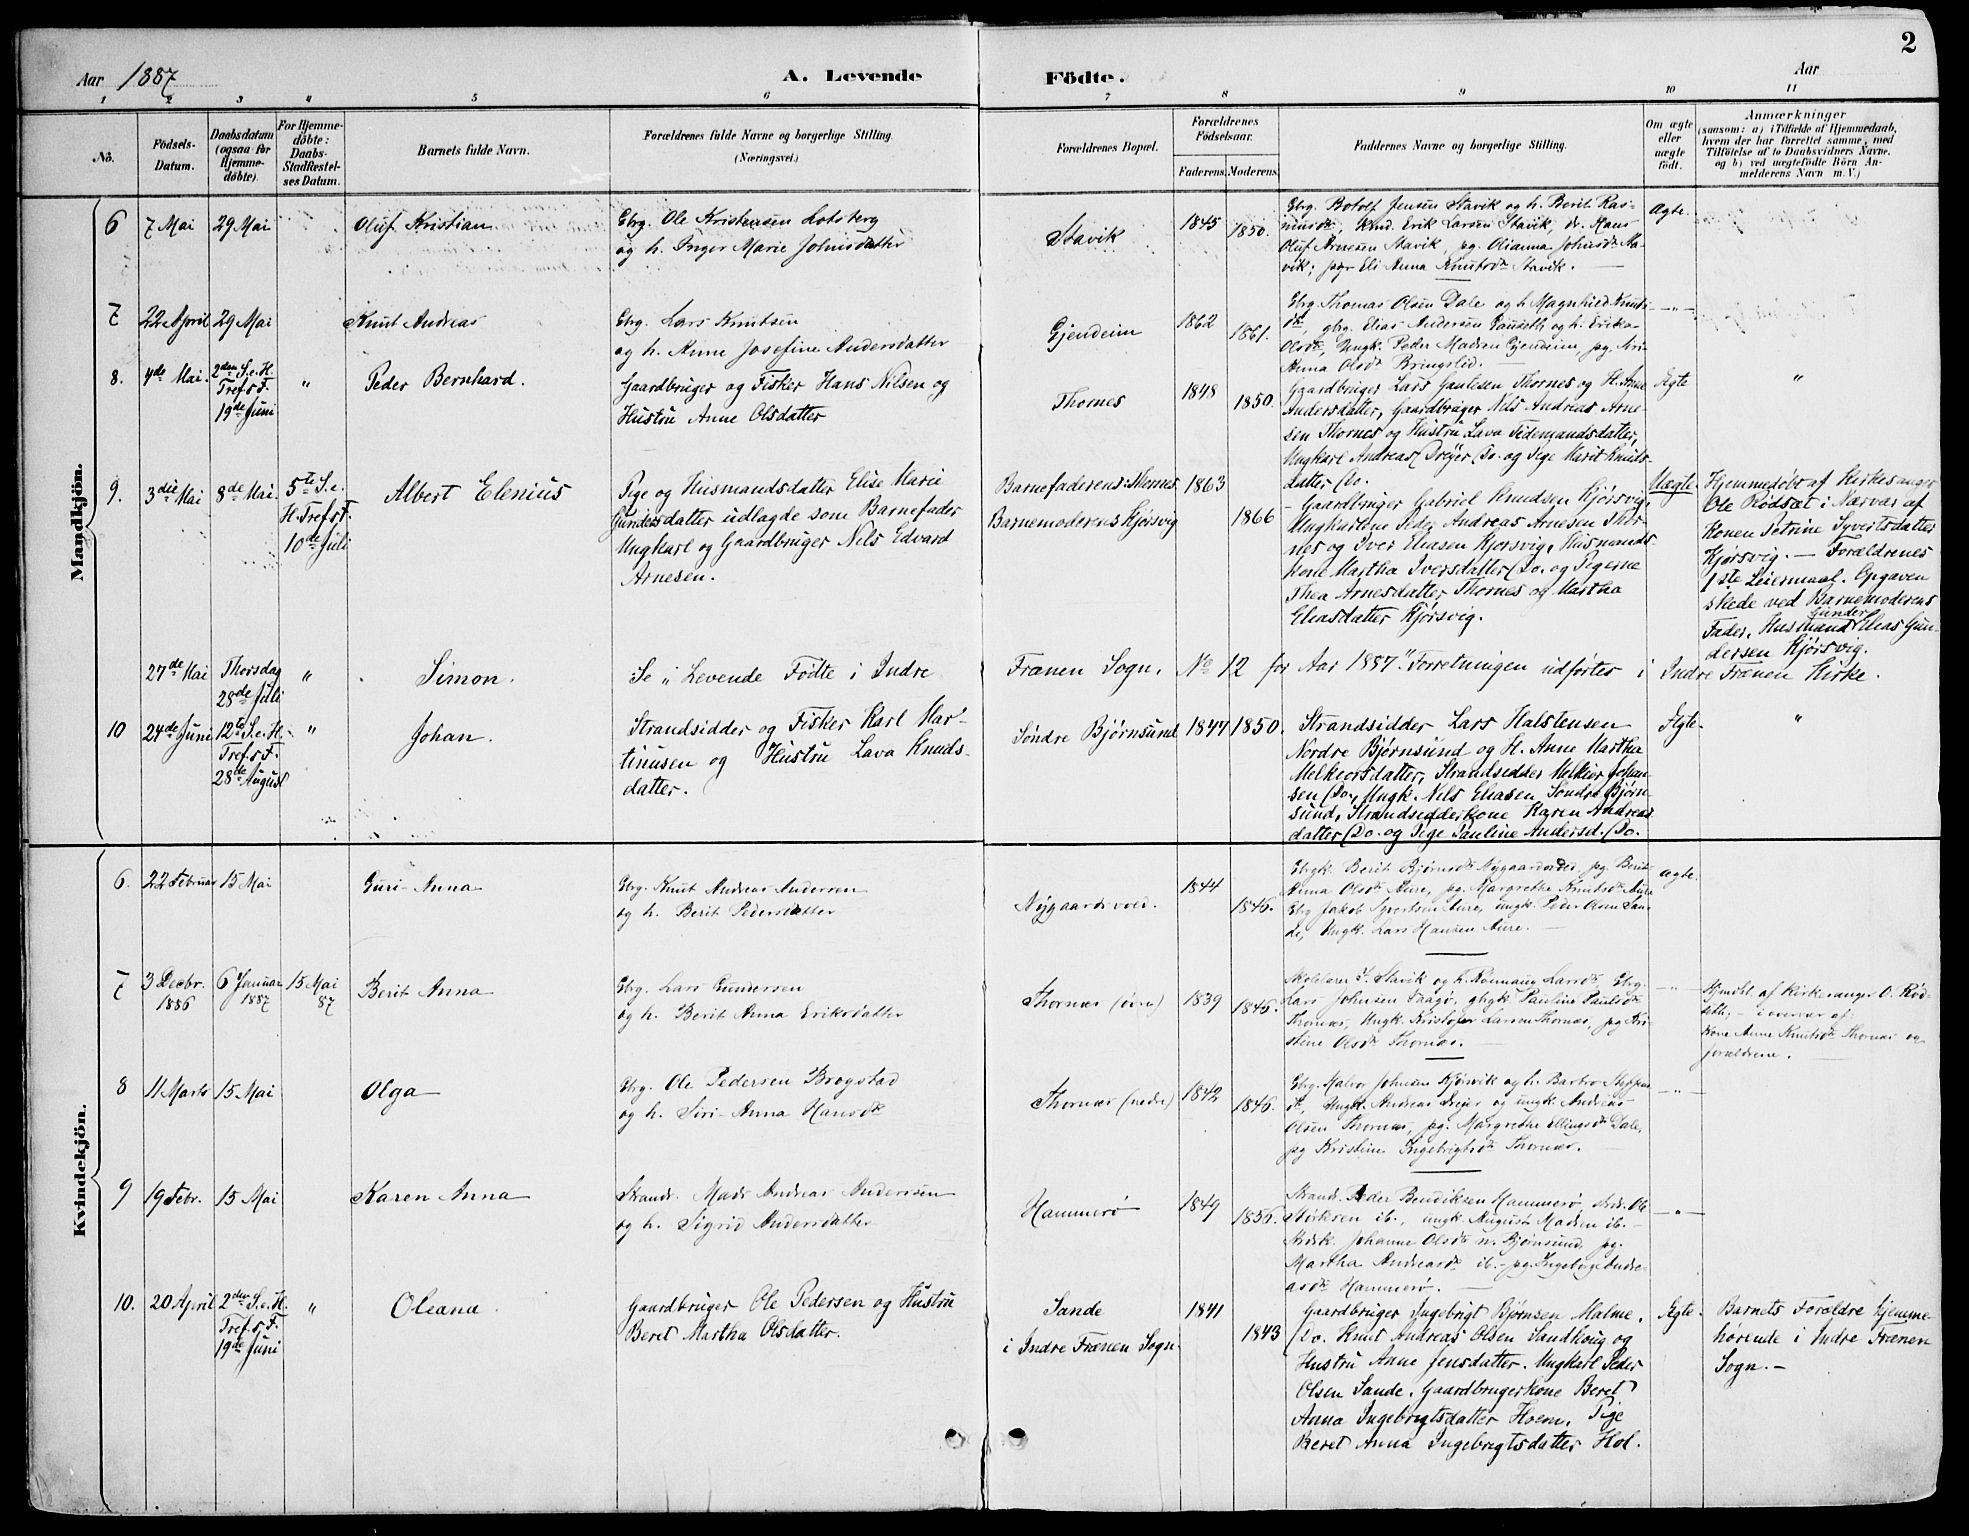 2
Aar 1887
A. Levende
Födte.
Aar
1 2 3 4 5 6 7 8 9 10 11
No.
Födsels-
Datum.
Daabsdatum
(ogsaa for
Hjemme-
döbte)
For Hjemme-
döbte:
Daabs-
Stadfæstel-
ses Datum.
Barnets fulde Navn.
Forældrenes fulde Navne og borgerlige Stilling.
(Næringsvei.)
Forældrenes Bopæl.
Forældrenes
Födselsaar.
Faderens. Moderens.
Faddernes Navne og borgerlige Stilling.
Om ægte
eller
uægte
født.
Anmærkninger
(saasom: a) i Tilfælde af Hjemmedaab,
hvem der har forrettet samme, med
Tilföielse af to Daabsvidners Navne,
og b) ved uægtefödte Börn An-
melderens Navn m. V.)
Mandkjön.
6 7 Mai 29 Mai Oluf Kristian
Gbrg. Ole Kristensen Lotsberg
og h. Inger Marie Johnsdatter
Stavik 1845 1850.
Gbrg. Botolf Jensen Stavik og h. Berit Ras-
musdr, Erik Larsen Stavik, dr. Hans
Oluf Arnesen Stavik, pg. Olianna Johnsdr Sta-
vik; Eli Anna Knutsdr Stavik.
Ægte.
7 22 April 29 Mai Knut Andreas
Gbrg. Lars Knutsen
og h. Anne Josefine Andersdatter
Gjendeim 1862 1861.
Gbrg. Thomas Olsen Dale og h. Magnhild Knuts-
dr, gbrg. Elias Andersen og h. Erika
Olsdr, Ungk. Peder Madsen Gjendeim, pg. Siri
Anna Olsdr Bringslid.
—"—
8. 4de Mai. 2den S.e.H.
Tref. s F.
19de Juni
" Peder Bernhard.
Gaardbruger og Fisker Hans Nilsen og
Hustru Anne Olsdatter
Thornes 1848 1850.
Gaardbruger Lars Gautesen Thornes og H. Anne
Andersdatter, Gaardbruger Nils Andreas Arne-
sen Thornes og Hustru Lava Tidemandsdatter,
Ungkarl Andreas Dreyer Do. og Pige Marit Knuts-
datter Do.
Ægte "
9. 3die Mai 8de Mai. 5te S.e.
H. Tref. s F.
10de Juli
Albert Elenius
Pige og Husmandsdatter Elise Marie
Gundersdatter udlagde som Barnefader
Ungkarl og Gaardbruger Nils Edvard
Arnesen.
Barnefaderens: Thornes 1863
Barnemoderens Kjørsvig 1866
Gaardbruger Gabriel Knudsen Kjørsvig,
Ungkarlene Peder Andreas Arnesen Thor-
nes og Iver Eliasen Kjørsvig, Husmands-
kone Martha Iversdatter Do. og Pigerne
Thea Arnesdatter Thornes og Martha
Eliasdatter Kjørsvig.
Uægte
Hjemmedøbt af Kirkesanger
Ole Rødsæt i Nærvær af
Konen Petrine Syvertsdatter
Kjørsvig. — Forældrenes
1ste Leiermaal. Opgaven
skede ved Barnemoderens
Fader, Husmand Gunder Elias Gun-
dersen Kjørsvig.
27de Mai Thorsdag
28de Juli
" Simon.
Se „Levende Fødte i Indre Frænen Sogn, No 12 for Aar 1887". Forretningen udførtes i Indre Frænen Kirke.
10 24de Juni 12te S.e.H.
Tref. s F.
28de August
" Johan.
Strandsidder og Fisker Karl Mar-
tinusen og Hustru Lava Knuds-
datter.
Søndre Bjørnsund 1847 1850.
Strandsidder Lars Halstensen
Nordre Bjørnsund og H. Anne Martha
Melkeorsdatter, Strandsidder Melkior Johan-
sen Do., Ungk. Nils Eliasen Søndre Bjørn-
sund, Strandsidderkone Karen Andreas-
datter Do. og Pige Pauline Andersd. Do.
Ægte. "
Kvindekjön.
6. 22 Februar 15 Mai Guri Anna
Gbrg. Knut Andreas Andersen
og h. Berit Pedersdatter
Nygaardsvoed. 1844 1846.
Gbrgk. Berit Bjørnsdr Nygaardsvoed, pg. Berit
Anna Olsdr Aure, pg. Margrethe Knutsdr Aure
Gbrg Jakob Syvertsen Aure, ungk. Peder Olsen San-
de, Ungk. Lars Hansen Aure.
Ægte.
7 3 Decbr.
1886
6 Januar
1887
15 Mai
87
Berit Anna
Gbrg. Lars Gundersen
og h. Berit Anna Eriksdatter
Thornes (øvre) 1839 1846.
Skolelærer Stavik og h. Rønnaug Larsdr, Gbrg.
Lars Johnsen Faagø, gbrgk Pauline Paulsdr
Thornes, Ungk. Kristofer Larsen Thornes, pg Kri-
stine Olsdr Thornes.
—"—
Hjmdbt. af Kirkesanger O. Rød-
seth. – i overvær af:
Kone Anne Knutsdr Thornes og
forældrene.
8 11 Marts 15 Mai Olga
Gbrg. Ole Pedersen Brogstad
og h. Siri Anna Hansdr
Thornes (nedre) 1842 1846.
Gbrg. Halvor Johnsen Kjørsvik og h. Barbro Steffens-
dr, Ungk. Andreas Dreyer og ungk. Andreas
Olsen Thornes, pg. Margrethe Ellingsdr Dale,
pg Kristine Ingebrigtsdr Thornes.
—"—
9 19 Febr. 15 Mai Karen Anna
Strands. Mads Andreas Andersen
og h. Sigrid Andersdatter
Hammerø 1849 1856.
Strands. Peder Bendiksen Hammerø, Ole
ib., ungk. August Madsen ib. –
Johanne Olsdr n. Bjørnsund, pg.
Martha Andreasdr ib. – pg. Ingeborg Andre-
asdr Hammerø.
—"—
10. 20 April 2den S.e.H.
Tref. s F.
19de Juni
" Oleana.
Gaardbruger Ole Pedersen og Hustru
Beret Martha Olsdatter.
Sande
i Indre Frænen Sogn. 1841 1843
Gaardbruger Ingebrigt Bjørnsen Malme.
Do. Knut Andreas Olsen Sandhoug og
Hustru Anne Jensdatter. Ungkarl Peder
Olsen Sande. Gaardbrugerkone Beret
Anna Ingebrigtsdatter Hoem, Pige
Beret Anna Ingebrigtsdatter Hol.
Ægte.
Barnets Forældre hjemme-
hørende i Indre Frænen
Sogn. –